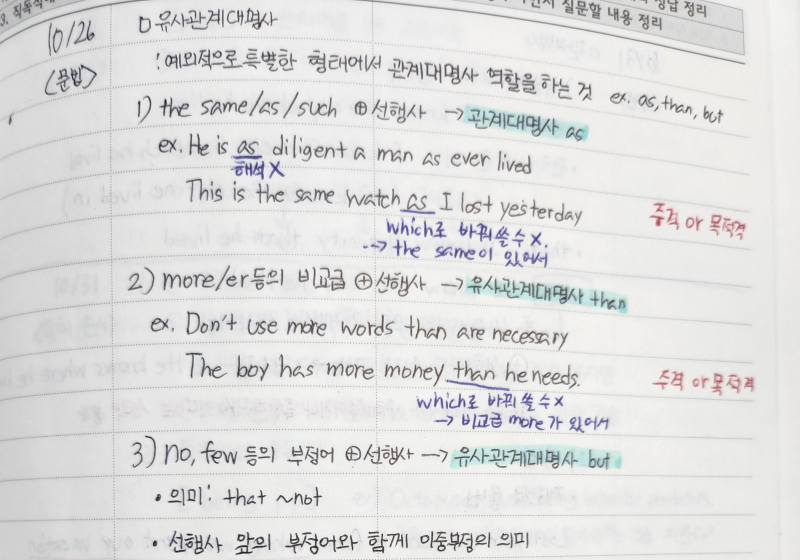 3. 직독직해
질문할 내용 정리
정답 정리
10/26
(문법)
□ 유사관계대명사
: 예외적으로 특별한 형태에서 관계대명사 역할을 하는 것 ex. as, than, but
1) the same/as/such ⊕선행사 → 관계대명사 as
ex. He is as diligent a man as ever lived
해석X
This is the same watch as I lost yesterday
주격 or 목적격
which로 바꿔 쓸 수 X.
→ the same이 있어서
2) more/er 등의 비교급 ⊕선행사 → 유사관계대명사 than
ex. Don't use more words than are necessary
The boy has more money than he needs.
주격 or 목적격
which로 바꿔 쓸 수 X
→ 비교급 more가 있어서
3) no, few 등의 부정어 ⊕선행사 → 유사관계대명사 but
• 의미: that ~not
• 선행사 앞의 부정어와 함께 이중부정의 의미